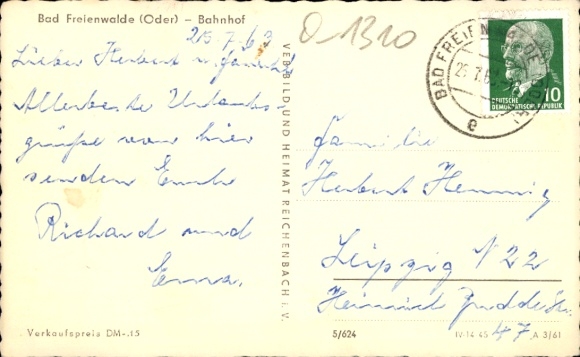 Bad Freienwalde (Oder) – Bahnhof
25.7.63
O-1310
Lieber Herbert u. Familie
Allerbeste Urlaubs-
grüße von hier
senden Euch
Richard und
Erna.
Verkaufspreis DM-.15
VEB BILD UND HEIMAT REICHENBACH i. V.
BAD FREIENWALDE (ODER)
e
DEUTSCHE
DEMOKRATISCHE REPUBLIK
10
Familie
Herbert Hennig
Leipzig N 22
Heinrich Budde Str.
47
5/624
IV-14-45
A 3/61